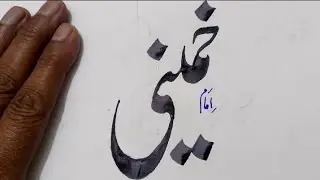 امام
خمینی